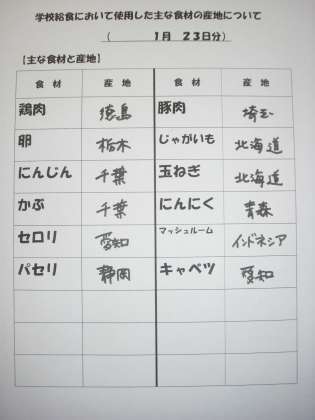 学校給食において使用した主な食材の産地について
（ 1月 23日分）
【主な食材と産地】
食 材 産 地 食 材 産 地
鶏肉 徳島 豚肉 埼玉
卵 栃木 じゃがいも 北海道
にんじん 千葉 玉ねぎ 北海道
かぶ 千葉 にんにく 青森
セロリ 愛知 マッシュルーム インドネシア
パセリ 静岡 キャベツ 愛知